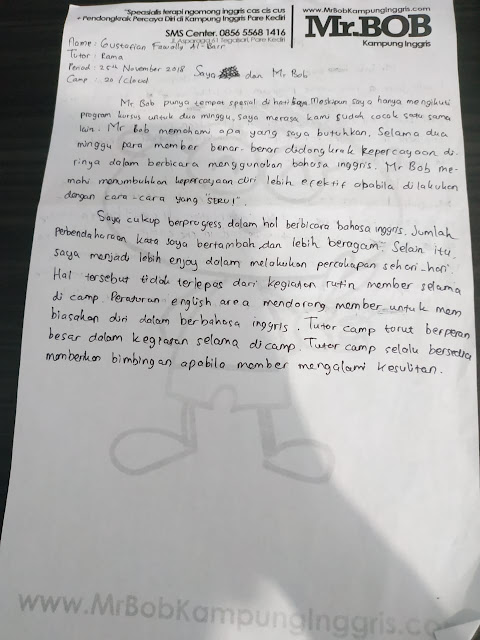 "Spesialis terapi ngomong inggris cas cis cus
+ Pendongkrak Percaya Diri di Kampung Inggris Pare Kediri
SMS Center. 0856 5568 1416
Jl. Asparaga 61 Tegalsari, Pare Kediri
www.MrBobKampungInggris.com
Mr.BOB
Kampung Inggris
Name : Gustafian Fawallu Al-Barr
Tutor : Rama
Period : 25th November 2018
Camp : 20 / Closed
Saya dan Mr. Bob
Mr. Bob punya tempat spesial di hati saya. Meskipun saya hanya mengikuti
program kursus untuk dua minggu, saya merasa kami sudah cocok satu sama
lain. Mr Bob memahami apa yang saya butuhkan. Selama dua
minggu para member benar-benar didongkrak kepercayaan di-
rinya dalam berbicara menggunakan bahasa inggris. Mr Bob me-
mahi menumbuhkan kepercayaan diri lebih efektif apabila dilakukan
dengan cara-cara yang "SERU".
Saya cukup berprogress dalam hal berbicara bahasa inggris. Jumlah
perbendaharaan kata saya bertambah dan lebih beragam. Selain itu
saya menjadi lebih enjoy dalam melakukan percakapan sehari-hari.
Hal tersebut tidak terlepas dari kegiatan rutin member selama
di camp. Peraturan english area mendorong member untuk mem
biasakan diri dalam berbahasa inggris. Tutor camp turut berperan
besar dalam kegiatan selama di camp. Tutor camp selalu bersedia
memberikan bimbingan apabila member mengalami kesulitan.
www.MrBobKampungInggris.co